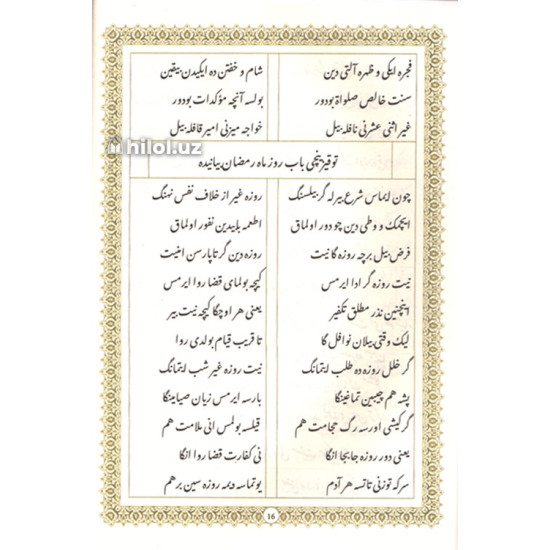 فجره ایکی و ظهره آلتی دین شام و خفتن ده ایکیدن بیقین
سنت خالص صلواة بودور بولسه آنچه مؤکدات بودور
غیر اثنی عشرنی نافله بیل خواجه میزنی امیر قافله بیل
hilol.uz
توقیزینچی باب روز ماه رمضان بیانیده
چون ایماس شرع بیرله گر بیلسنگ روزه غیر از خلاف نفس نهنگ
ایچمک و وطی دین چو دور اولماق اطعمه بابیدین نفور اولماق
فرض بیل برچه روزه گا نیت روزه دین گر تاپارسن امنیت
نیت روزه گر ادا ایرمس کیچه بولمای قضا روا ایرمس
اینچنین نذر مطلق تکفیر یعنی هر اوچگا کیچه نیت بیر
لیک وقتی بیلان نوافل گا تا قریب قیام بولدی روا
گر خلل روزه ده طلب ایتمانگ نیت روزه غیر شب ایتمانگ
پشه هم چیبین تماغینگا بارسه ایرمس زیان صیامینگا
گر کیشی اورسه رگ حجامت هم قیلسه بولمس انی ملامت هم
یعنی دور روزه جابجا انگا نی کفارت قضا روا انگا
سرکه توزنی تاتسه هر آدم یوتماسه دیمه روزه سین برهم
16